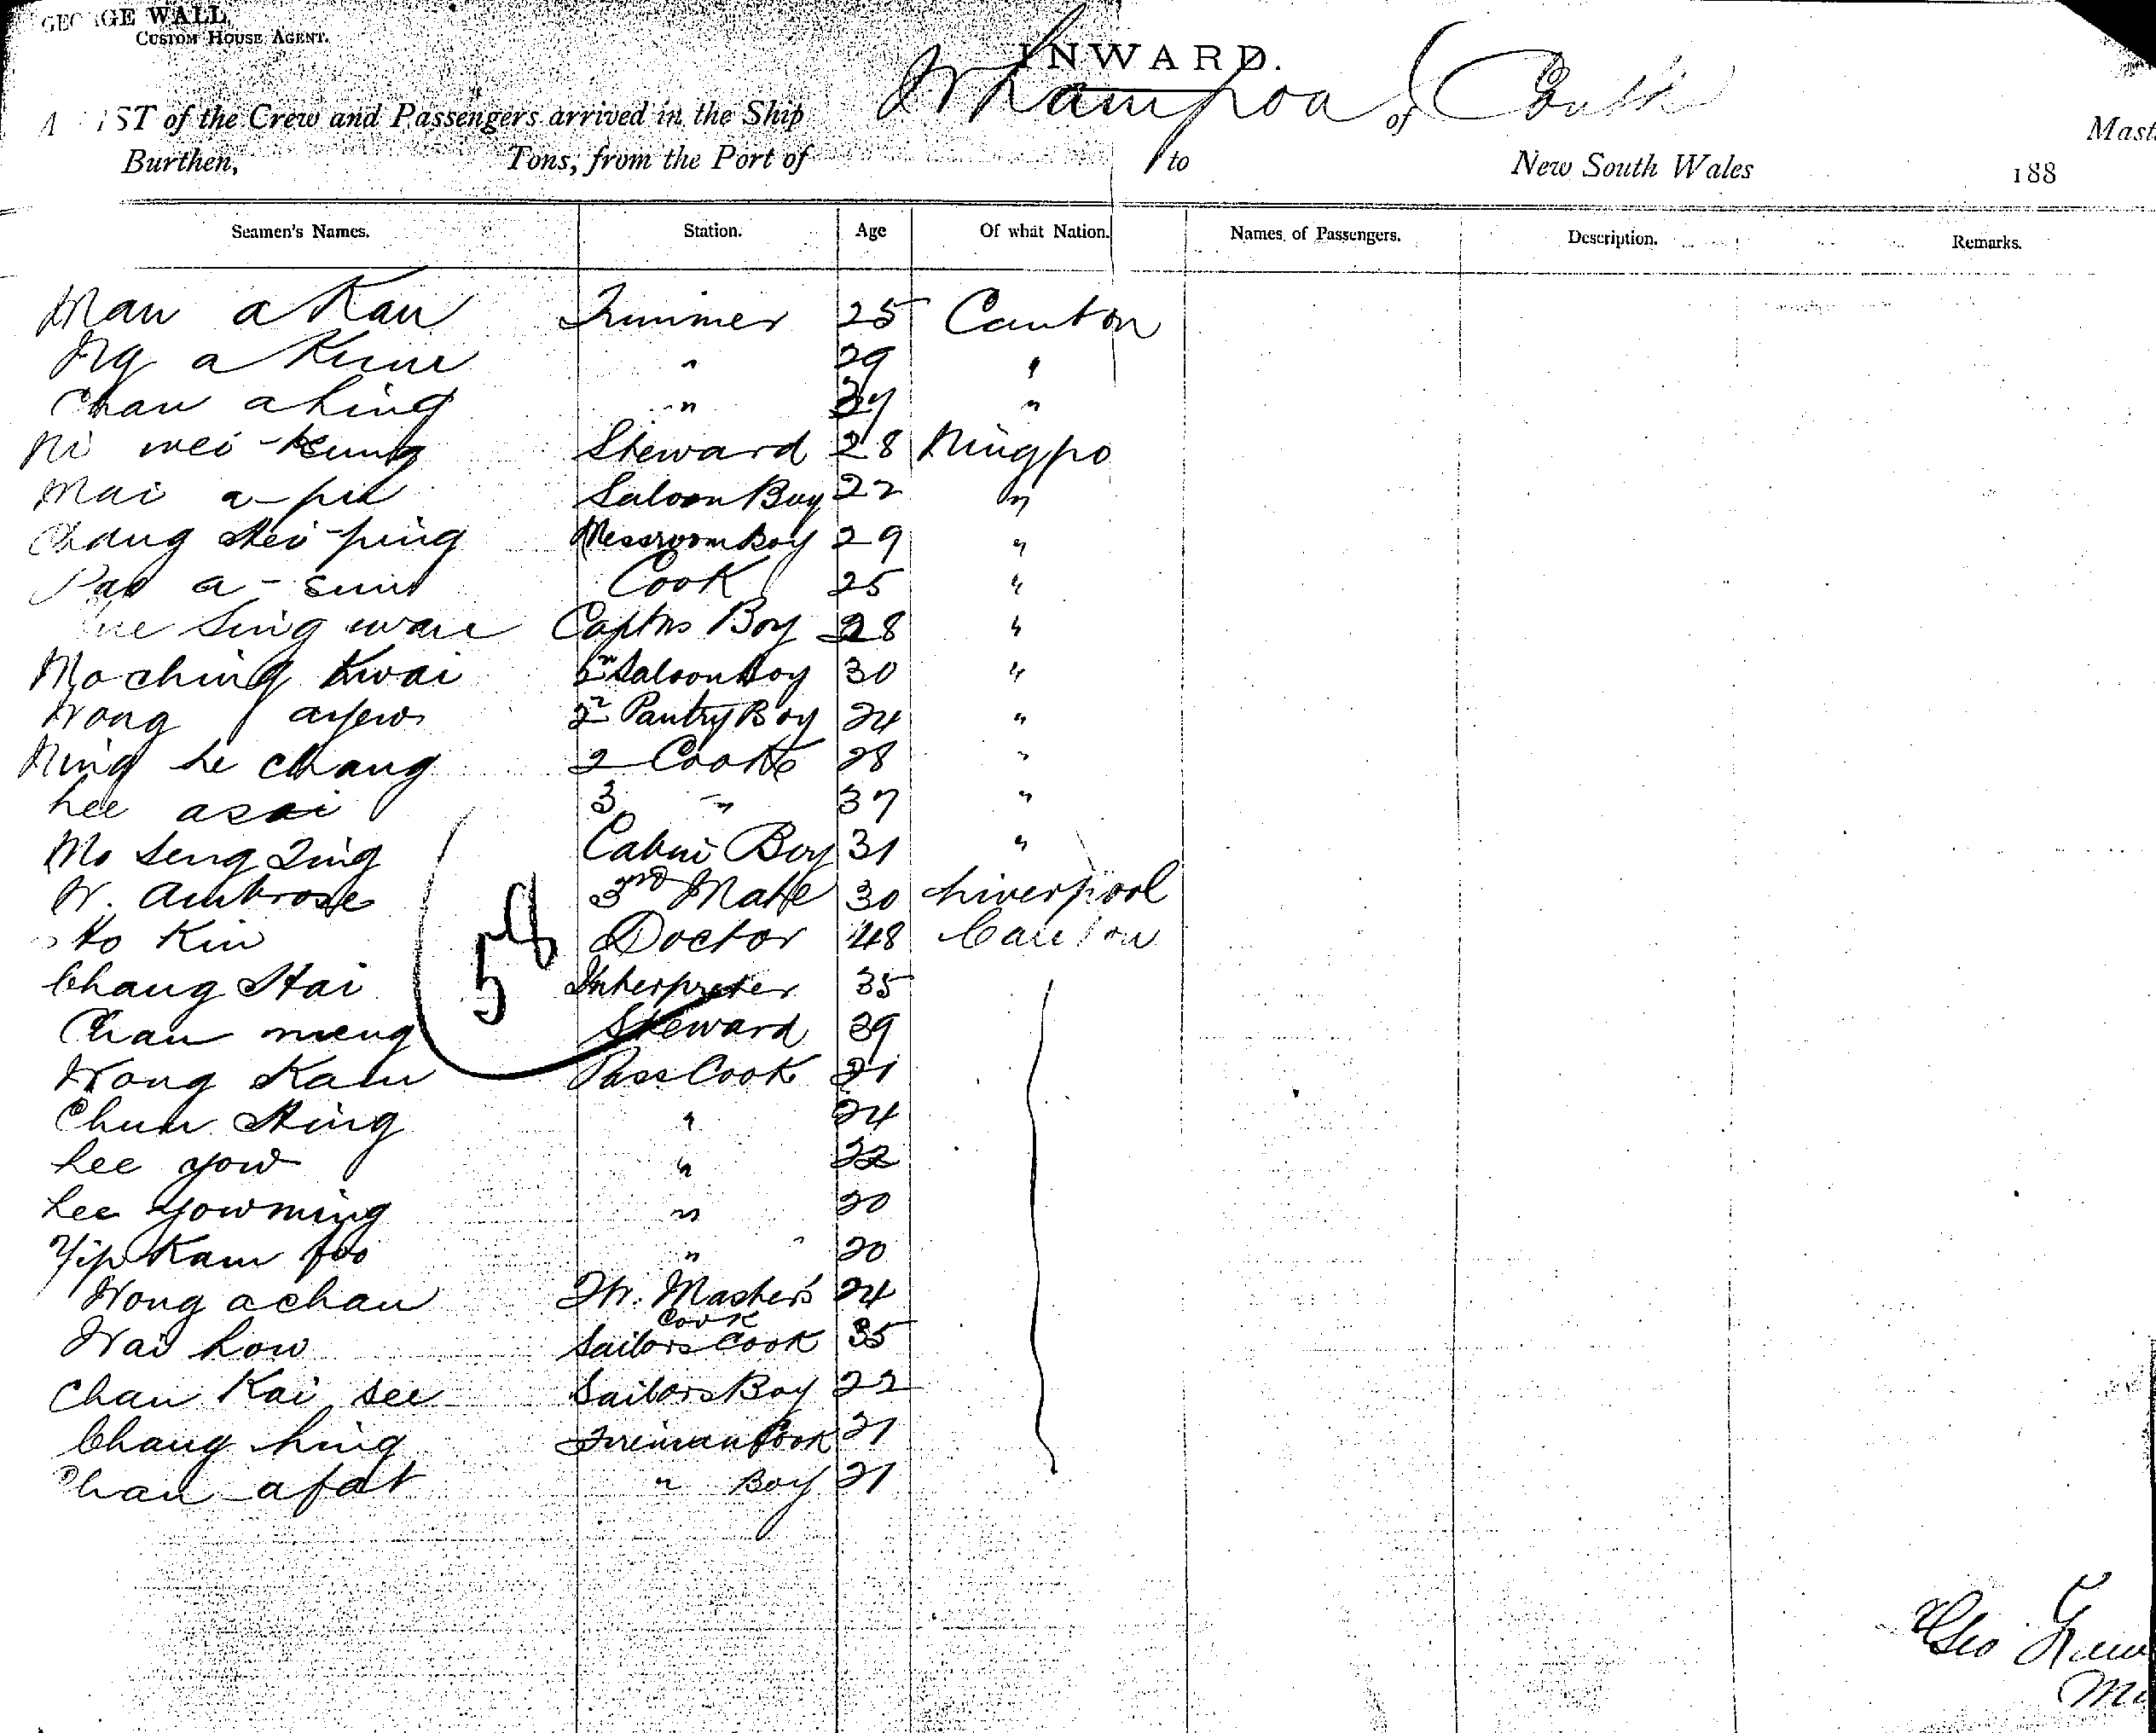 GEORGE WALL,
CUSTOM HOUSE AGENT.
INWARD.
A LIST of the Crew and Passengers arrived in the Ship Whampoa of Mast
Burthen, Tons, from the Port of to New South Wales 188
Seamen's Names. Station. Age Of what Nation. Names of Passengers. Description. Remarks.
Man a Kan Trimmer 25 Canton
Ng a Kum " 29 "
Chan a hing " 27 "
Ni wei-kung Steward 28 Ningpo
Mai a-pu Saloon Boy 22 "
Chang Hei-ping Messroom Boy 29 "
Pao a-sun Cook 25 "
Sing Captns Boy 28 "
Mo ching Kwai 2n Saloon Boy 30 "
Wong ayew 2n Pantry Boy 24 "
Ning he chang 2 Cook 28 "
Lee asai 3 " 37 "
Mo Seng Zing Cabin Boy 31 "
W. Ambrose 3rd Mate 30 Liverpool
Ho Kin Doctor 48 Canton
Chang Hai Interpreter 35
Chan meng Steward 39
Wong Kam Pass Cook 21
Chun Hing " 24
Lee yow " 22
Lee Yowming " 20
Yip Kam foo " 20
Wong achan Tw. Master's Cook 24
Wai how Sailors Cook 35
Chan Kai see Sailors Boy 22
Chang hing Fireman Cook 21
Chan afat " Boy 21
59
Geo